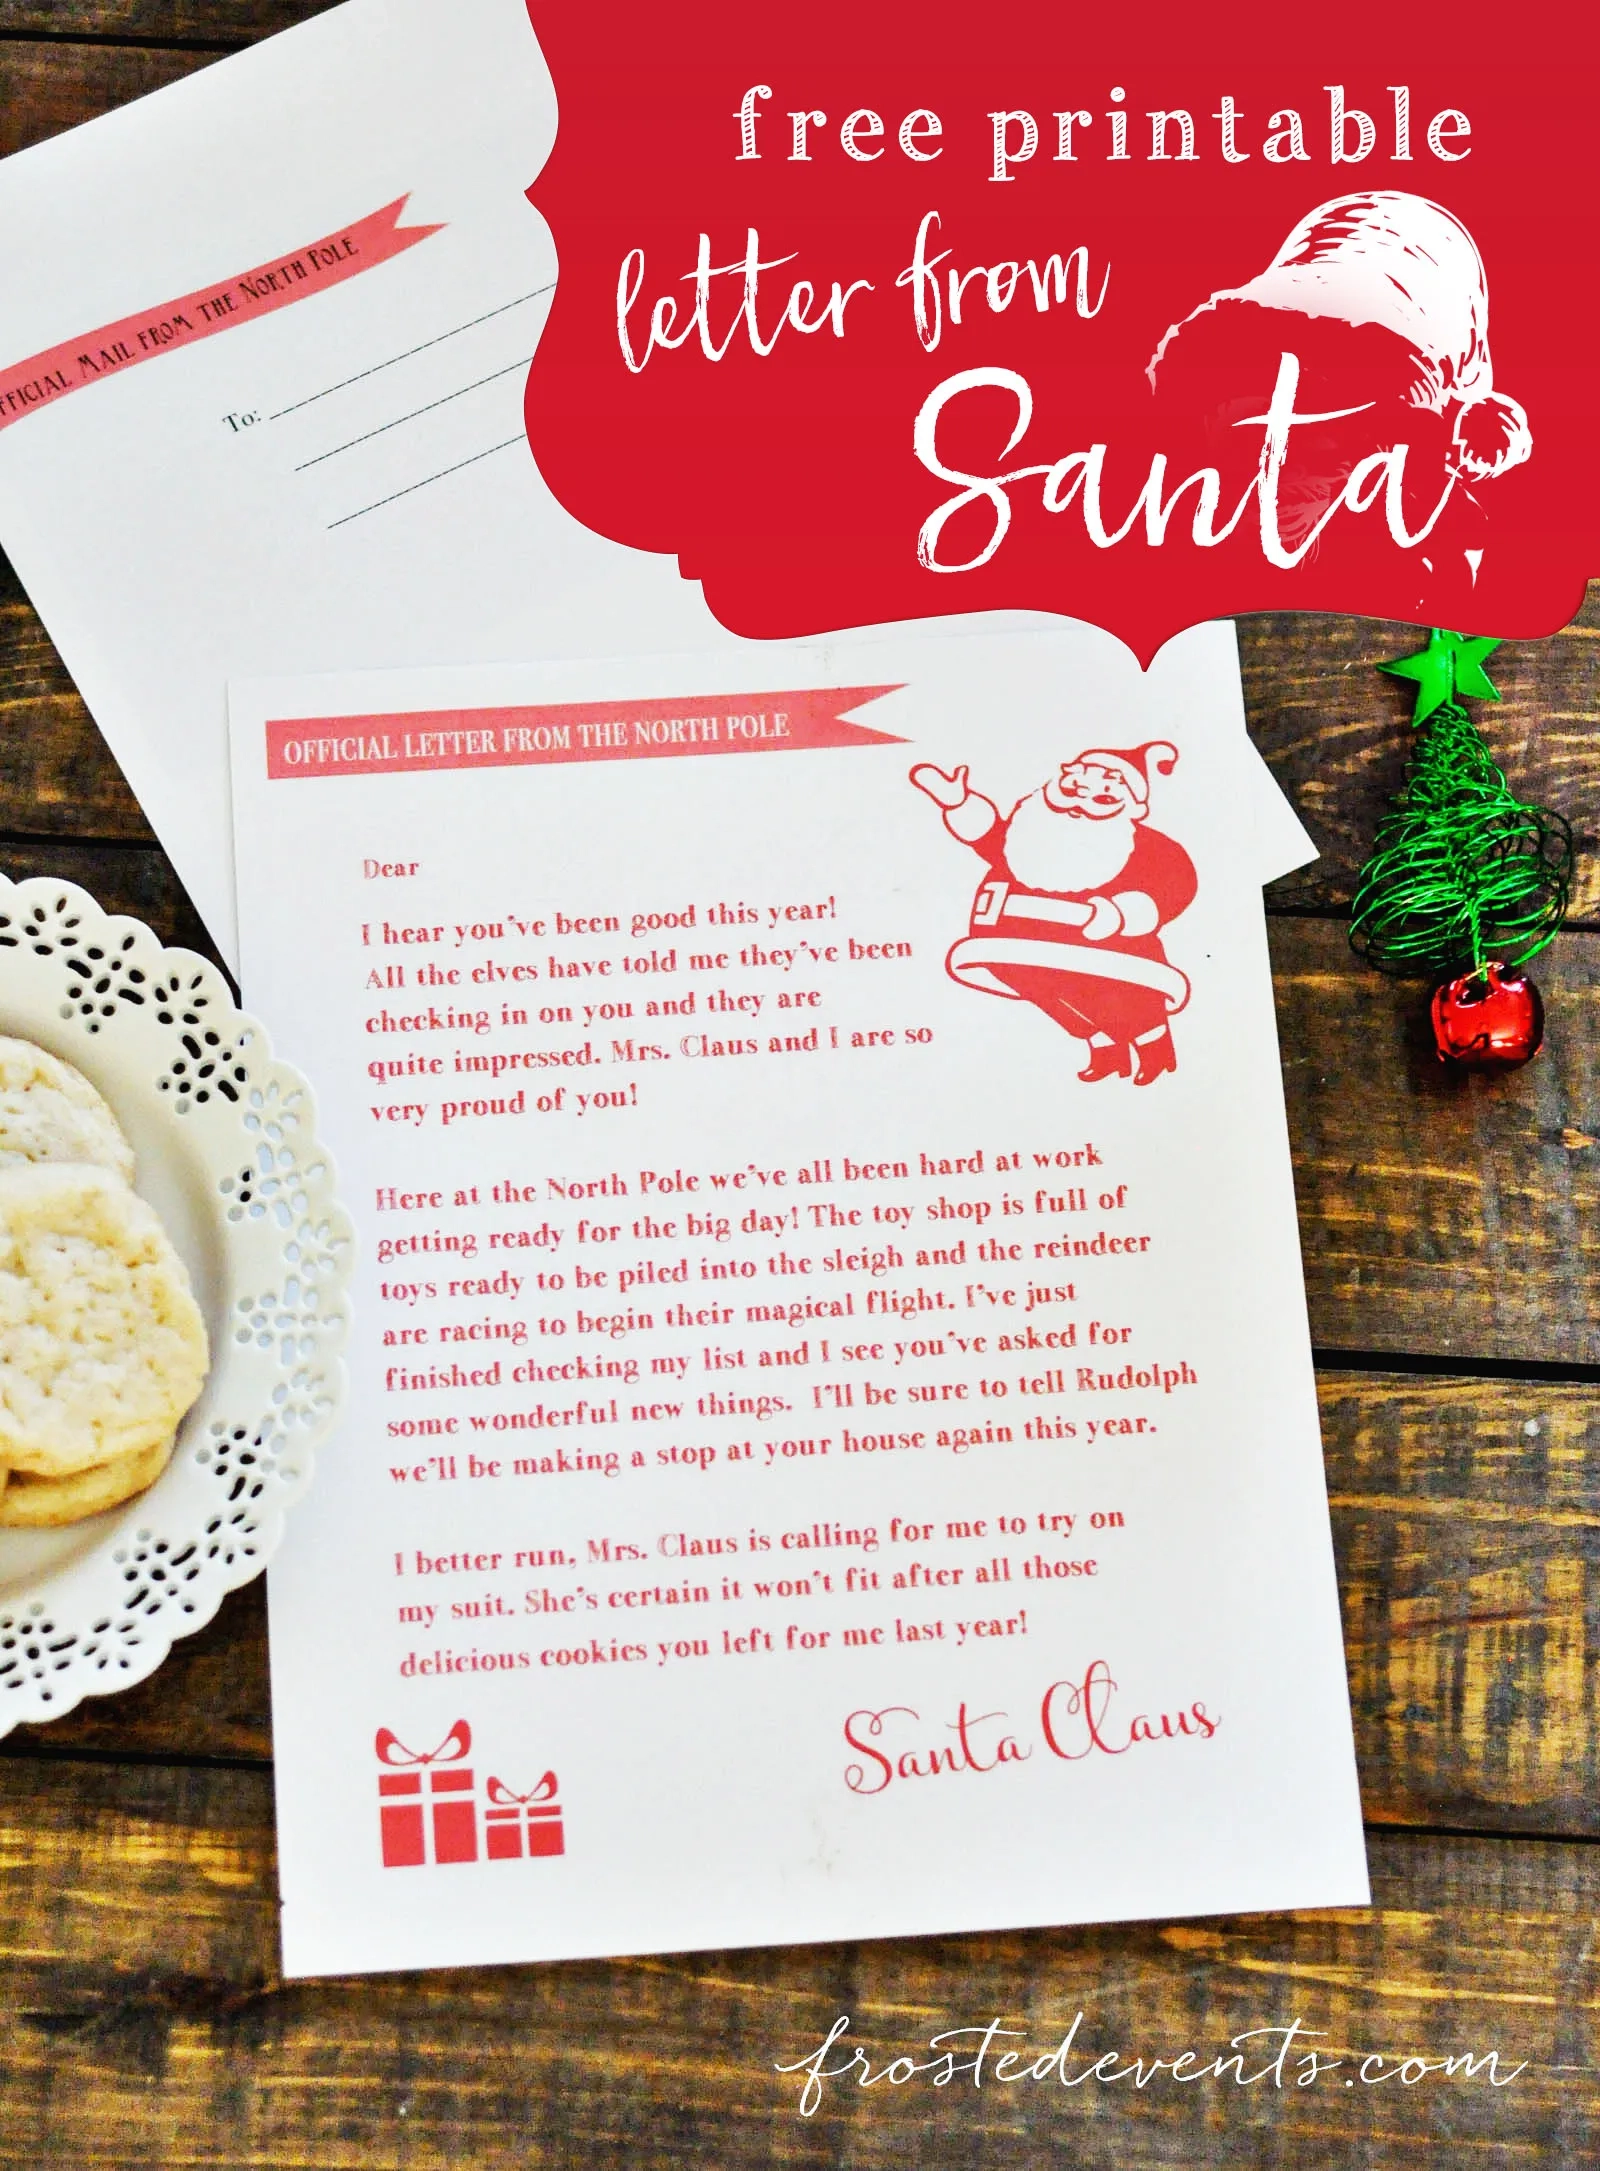 free printable
letter from
Santa
OFFICIAL MAIL FROM THE NORTH POLE
To:
OFFICIAL LETTER FROM THE NORTH POLE
Dear
I hear you've been good this year!
All the elves have told me they've been
checking in on you and they are
quite impressed. Mrs. Claus and I are so
very proud of you!
Here at the North Pole we've all been hard at work
getting ready for the big day! The toy shop is full of
toys ready to be piled into the sleigh and the reindeer
are racing to begin their magical flight. I've just
finished checking my list and I see you've asked for
some wonderful new things. I'll be sure to tell Rudolph
we'll be making a stop at your house again this year.
I better run, Mrs. Claus is calling for me to try on
my suit. She's certain it won't fit after all those
delicious cookies you left for me last year!
Santa Claus
frostedevents.com